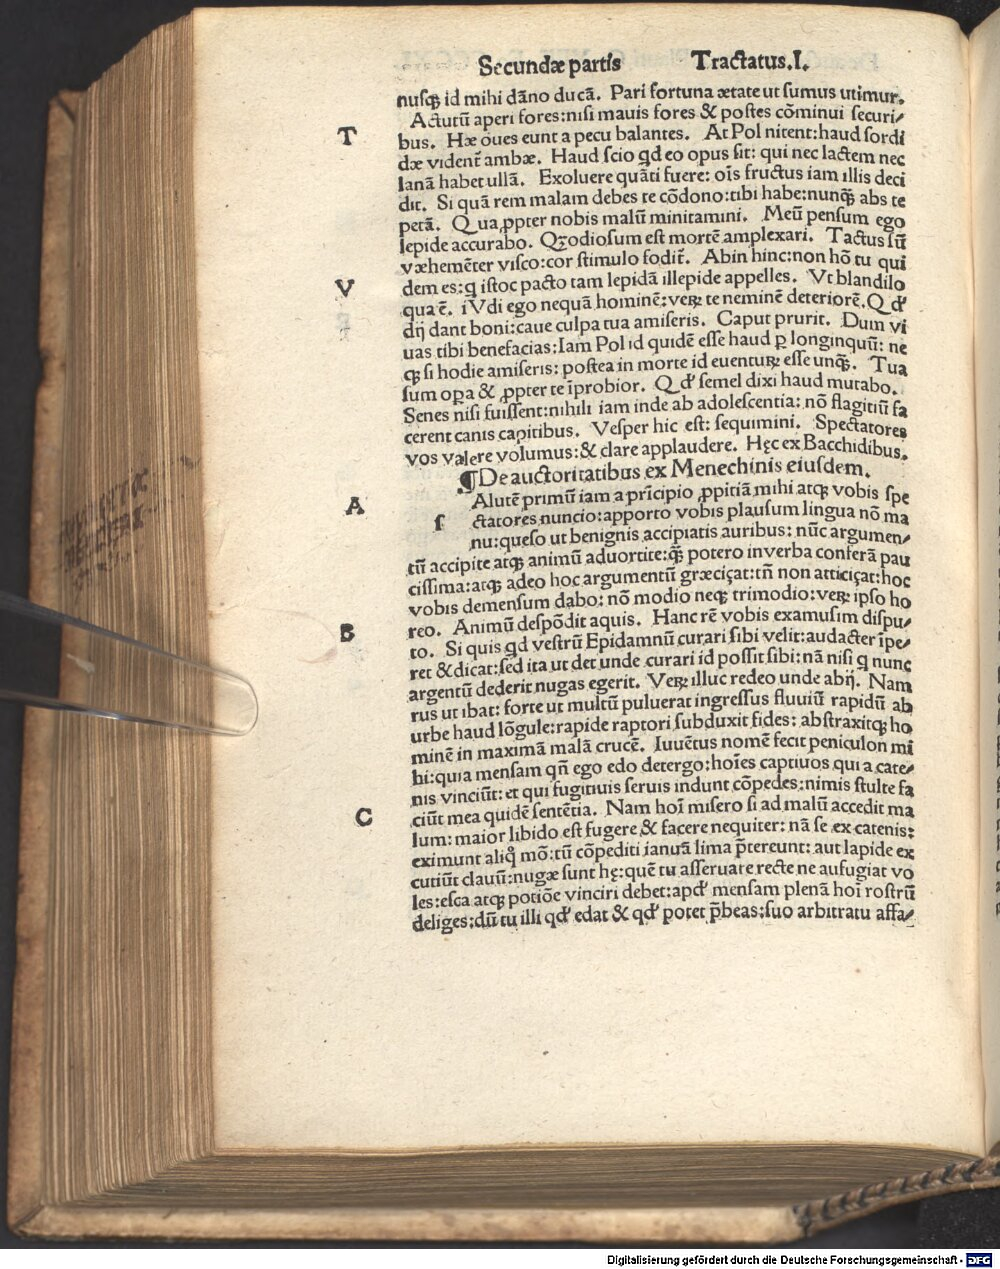 Secundæ partis Tractatus.I.
nusq̃ id mihi dãno ducã. Pari fortuna ætate ut sumus utimur.
Actutũ aperi fores:nisi mauis fores & postes cõminui securi/
T
bus. Hæ oues eunt a pecu balantes. At Pol nitent:haud sordi
dæ vident̃ ambæ. Haud scio qd eo opus sit: qui nec lactem nec
lanã habet ullã. Exoluere quãti fuere: oĩs fructus iam illis deci
dit. Si quã rem malam debes te cõdono:tibi habe:nunq̃ abs te
petã. Qua ꝓpter nobis malũ minitamini. Meũ pensum ego
lepide accurabo. Qꝫodiosum est mortẽ amplexari. Tactus sũ
væhemẽter visco:cor stimulo fodit̃. Abin hinc:non hõ tu qui
V
dem es:q istoc pacto tam lepidã illepide appelles. Vt blandilo
qua ẽ. iVdi ego nequã hominẽ:veꝝ te neminẽ deteriorẽ.Qd'
dij dant boni:caue culpa tua amiseris. Caput prurit. Dum vi
uas tibi benefacias:Iam Pol id quidẽ esse haud ꝑ longinquũ: ne
qꝫ si hodie amiseris: postea in morte id euentuꝝ esse unq̃. Tua
sum oꝑa & ꝓpter te ĩprobior. Qd' semel dixi haud mutabo.
Senes nisi fuissent:nihili iam inde ab adolescentia: nõ flagitiũ fa
cerent canis capitibus. Vesper hic est: sequimini. Spectatores
vos valere volumus:& clare applaudere. Hęc ex Bacchidibus.
¶De auctoritatibus ex Menechinis eiusdem.
A
s Alutẽ primũ iam a prĩcipio ꝓpitiã mihi atqꝫ vobis spe
ctatores nuncio:apporto vobis plausum lingua nõ ma
nu:queso ut benignis accipiatis auribus: nũc argumen/
tũ accipite atqꝫ animũ aduortite:q̃ potero inverba conferã pau
cissima:atqꝫ adeo hoc argumentũ græciçat:tñ non atticiçat:hoc
vobis demensum dabo: nõ modio neqꝫ trimodio:veꝝ ipso ho
B
reo. Animũ despõdit aquis. Hanc rẽ vobis examusim dispu/
to. Si quis qd vestrũ Epidamnũ curari sibi velit:audacter ĩpe/
ret & dicat:sed ita ut det unde curari id possit sibi: nã nisi q nunc
argentũ dederit nugas egerit. Veꝝ illuc redeo unde abij. Nam
rus ut ibat: forte ut multũ puluerat ingressus fluuiũ rapidũ ab
urbe haud lõgule:rapide raptori subduxit fides: abstraxitqꝫ ho
minẽ in maximã malã crucẽ. Iuuẽtus nomẽ fecit peniculon mi
hi:quia mensam qñ ego edo detergo:hoĩes captiuos qui a cate/
nis vinciũt: et qui fugitiuis seruis indunt cõpedes:nimis stulte fa
C
ciũt mea quidẽ sentẽtia. Nam hoĩ misero si ad malũ accedit ma
lum: maior libido est fugere & facere nequiter: nã se ex catenis:
eximunt aliq̃ mõ:tũ cõpediti ianuã lima p̃tereunt: aut lapide ex
cutiũt clauũ:nugæ sunt hę:quẽ tu asseruare recte ne aufugiat vo
les:esca atqꝫ potiõe vinciri debet:apd' mensam plenã hoĩ rostrũ
deliges:dũ tu illi qd' edat & qd' potet p̃beas:suo arbitratu affa/
Digitalisierung gefördert durch die Deutsche Forschungsgemeinschaft - DFG